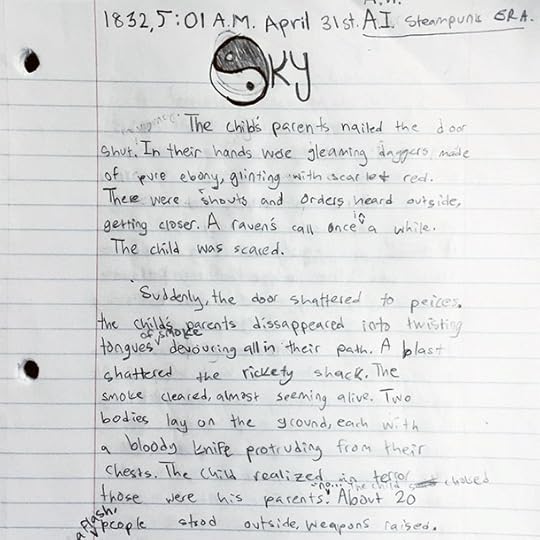 1832, 5:01 A.M. April 31st. A.I. Steampunk ERA.
Sky
The child's parents nailed the door
shut. In their hands were gleaming daggers made
of pure ebony, glinting with scarlet red.
There were shouts and orders heard outside,
getting closer. A raven's call once in a while.
The child was scared.
Suddenly, the door shattered to peices.
the child's parents dissappeared into twisting
tongues of smoke devouring all in their path. A blast
shattered the rickety shack. The
smoke cleared, almost seeming alive. Two
bodies lay on the ground, each with
a bloody knife protruding from their
chests. The child realized in terror
those were his parents. "no... the child choked
About 20
a flash,
people strod outside, weapons raised.